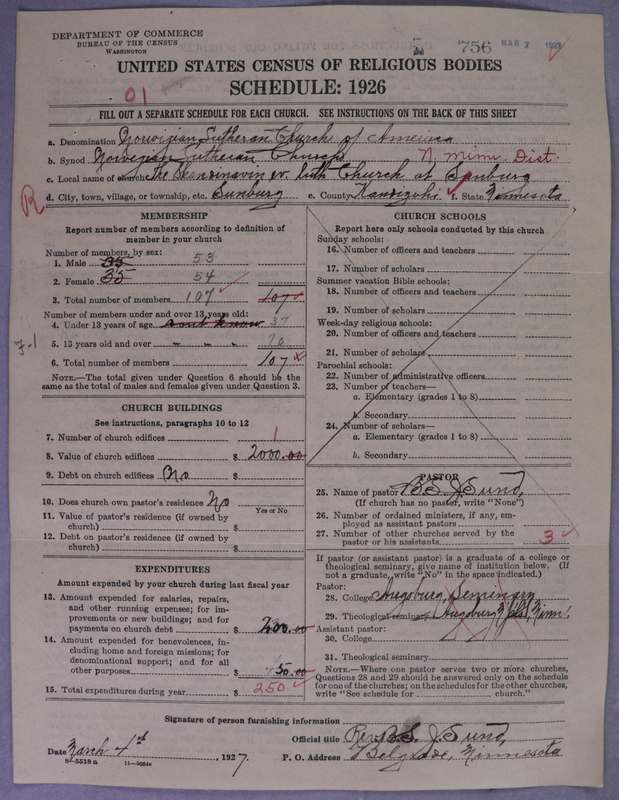 DEPARTMENT OF COMMERCE
BUREAU OF THE CENSUS
WASHINGTON
756 MAR 2
UNITED STATES CENSUS OF RELIGIOUS BODIES
SCHEDULE: 1926
01
FILL OUT A SEPARATE SCHEDULE FOR EACH CHURCH. SEE INSTRUCTIONS ON THE BACK OF THIS SHEET
a. Denomination Norwigian Lutheran Church of America
b. Synod Norwegian Lutheran Church N. Minn. Dist.
c. Local name of church the Skandinavin ev. luth Church at Sunburg
d. City, town, village, or township, etc. Sunburg e. County Kandiyohi f. State Minnesota
R
MEMBERSHIP
Report number of members according to definition of
member in your church
Number of members, by sex:
1. Male 35 53
2. Female 35 54
3. Total number of members 107 107
Number of members under and over 13 years old:
4. Under 13 years of age dont know 37
5. 13 years old and over 70
6. Total number of members 107
NOTE.—The total given under Question 6 should be the
same as the total of males and females given under Question 3.
CHURCH BUILDINGS
See instructions, paragraphs 10 to 12
7. Number of church edifices 1
8. Value of church edifices $ 2000.00
9. Debt on church edifices No $
10. Does church own pastor's residence No
Yes or No
11. Value of pastor's residence (if owned by
church) $
12. Debt on pastor's residence (if owned by
church) $
EXPENDITURES
Amount expended by your church during last fiscal year
13. Amount expended for salaries, repairs,
and other running expenses; for im-
provements or new buildings; and for
payments on church debt $ 200.00
14. Amount expended for benevolences, in-
cluding home and foreign missions; for
denominational support; and for all
other purposes $ 50.00
15. Total expenditures during year $ 250
CHURCH SCHOOLS
Report here only schools conducted by this church
Sunday schools:
16. Number of officers and teachers
17. Number of scholars
Summer vacation Bible schools:
18. Number of officers and teachers
19. Number of scholars
Week-day religious schools:
20. Number of officers and teachers
21. Number of scholars
Parochial schools:
22. Number of administrative officers
23. Number of teachers—
a. Elementary (grades 1 to 8)
b. Secondary
24. Number of scholars—
a. Elementary (grades 1 to 8)
b. Secondary
PASTOR
25. Name of pastor B.S.J. Sund,
(If church has no pastor, write "None")
26. Number of ordained ministers, if any, em-
ployed as assistant pastors
27. Number of other churches served by the
pastor or his assistants 3
If pastor (or assistant pastor) is a graduate of a college or
theological seminary, give name of institution below. (If
not a graduate, write "No" in the space indicated.)
Pastor:
28. College Augsburg Seminary
29. Theological seminary Augsburg Mpls, Minn.
Assistant pastor:
30. College
31. Theological seminary
NOTE.—Where one pastor serves two or more churches,
Questions 28 and 29 should be answered only on the schedule
for one of the churches; on the schedules for the other churches,
write "See schedule for church."
Signature of person furnishing information
Official title Rev. B.S.J. Sund,
Date March 4th, 1927. P. O. Address Belgrade, Minnesota
8-5518a